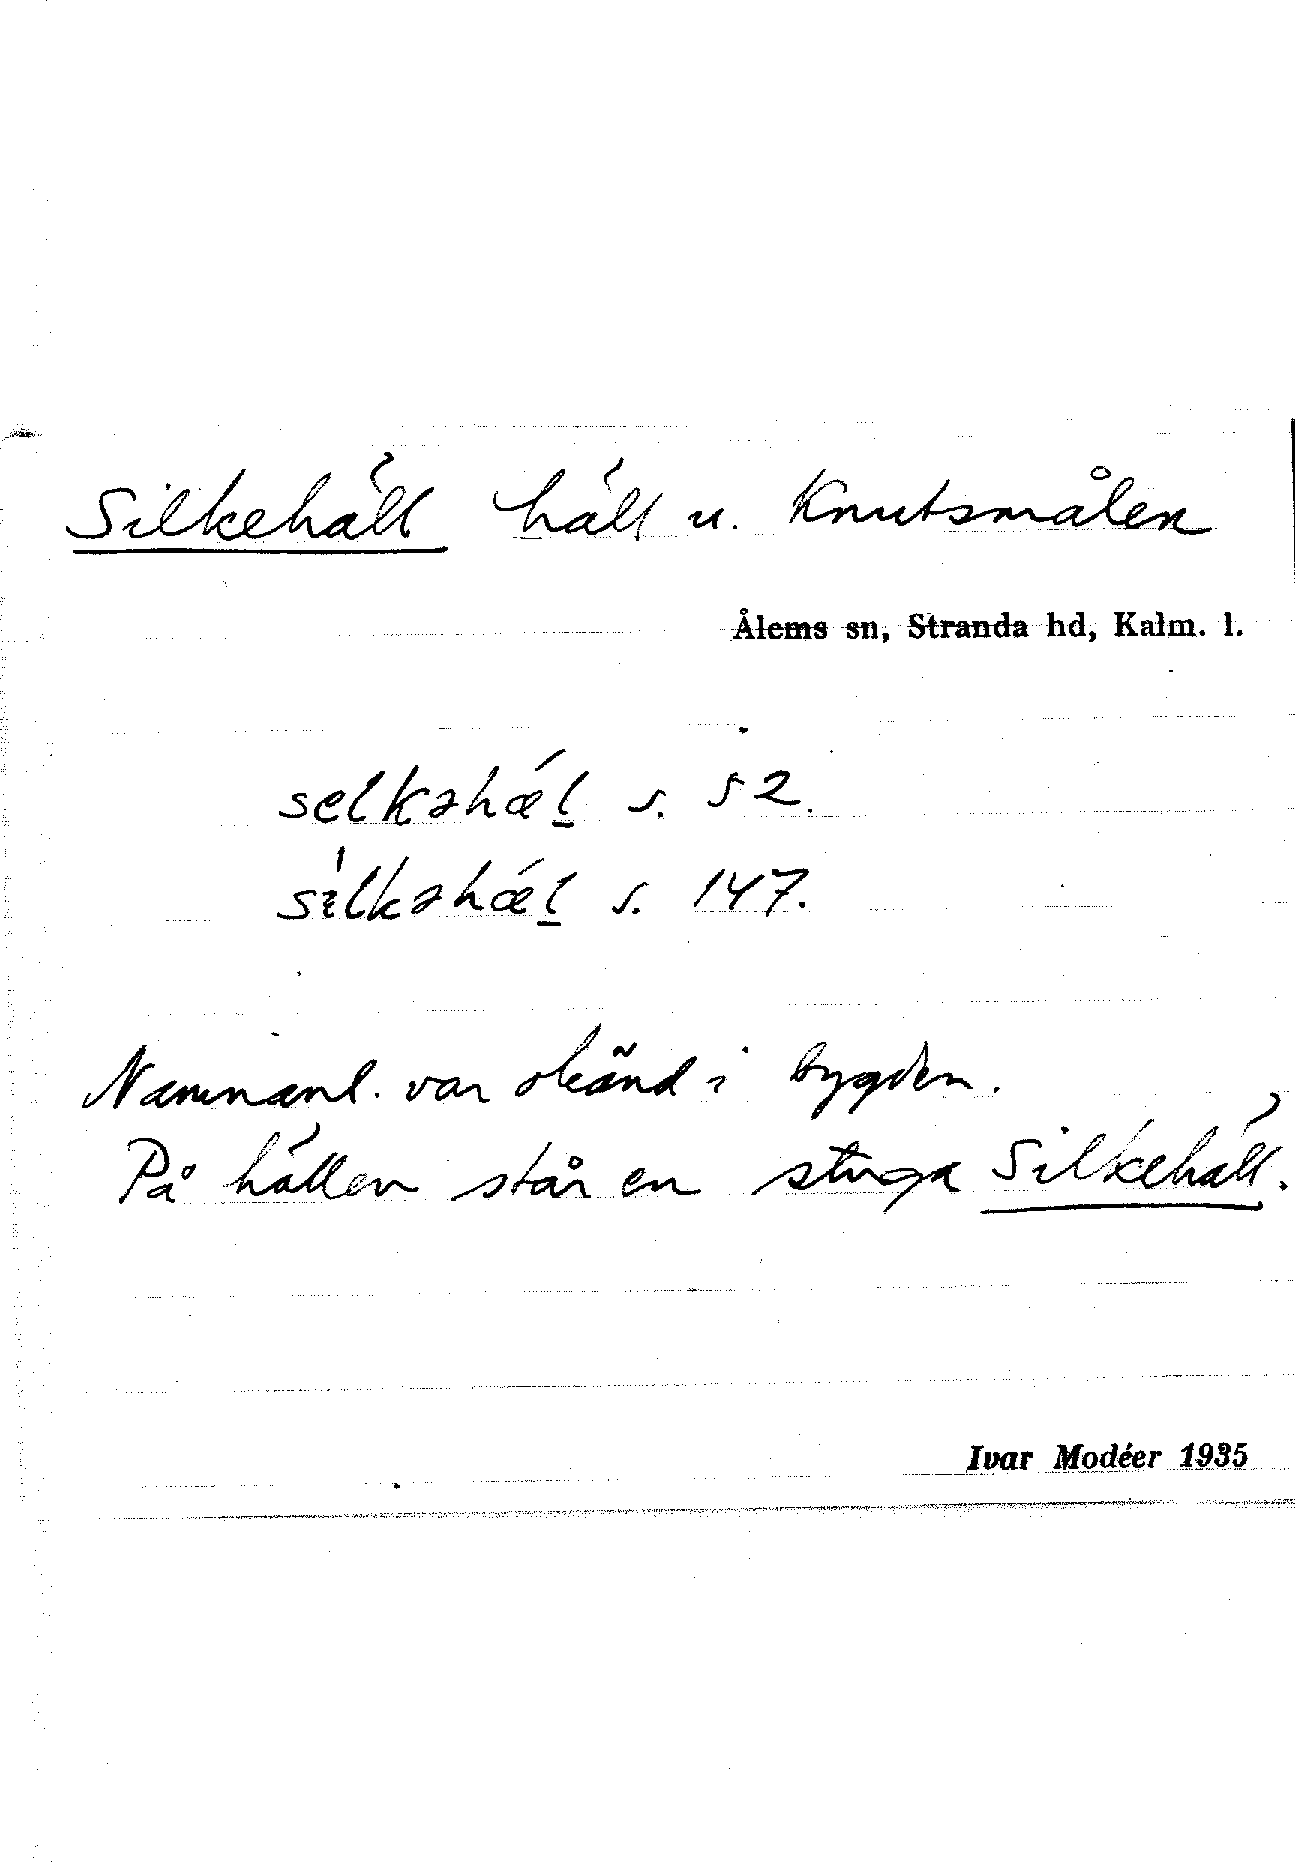 Silkehäll häll u. Knutsmålen
Ålems sn, Stranda hd, Kalm. l.
selkəhæ̀l̲ s. 52.
sìlkəhæ̀l̲ s. 147.
Namnanl. var okänd i bygden.
På hällen står en stuga Silkehäll.
Ivar Modéer 1935